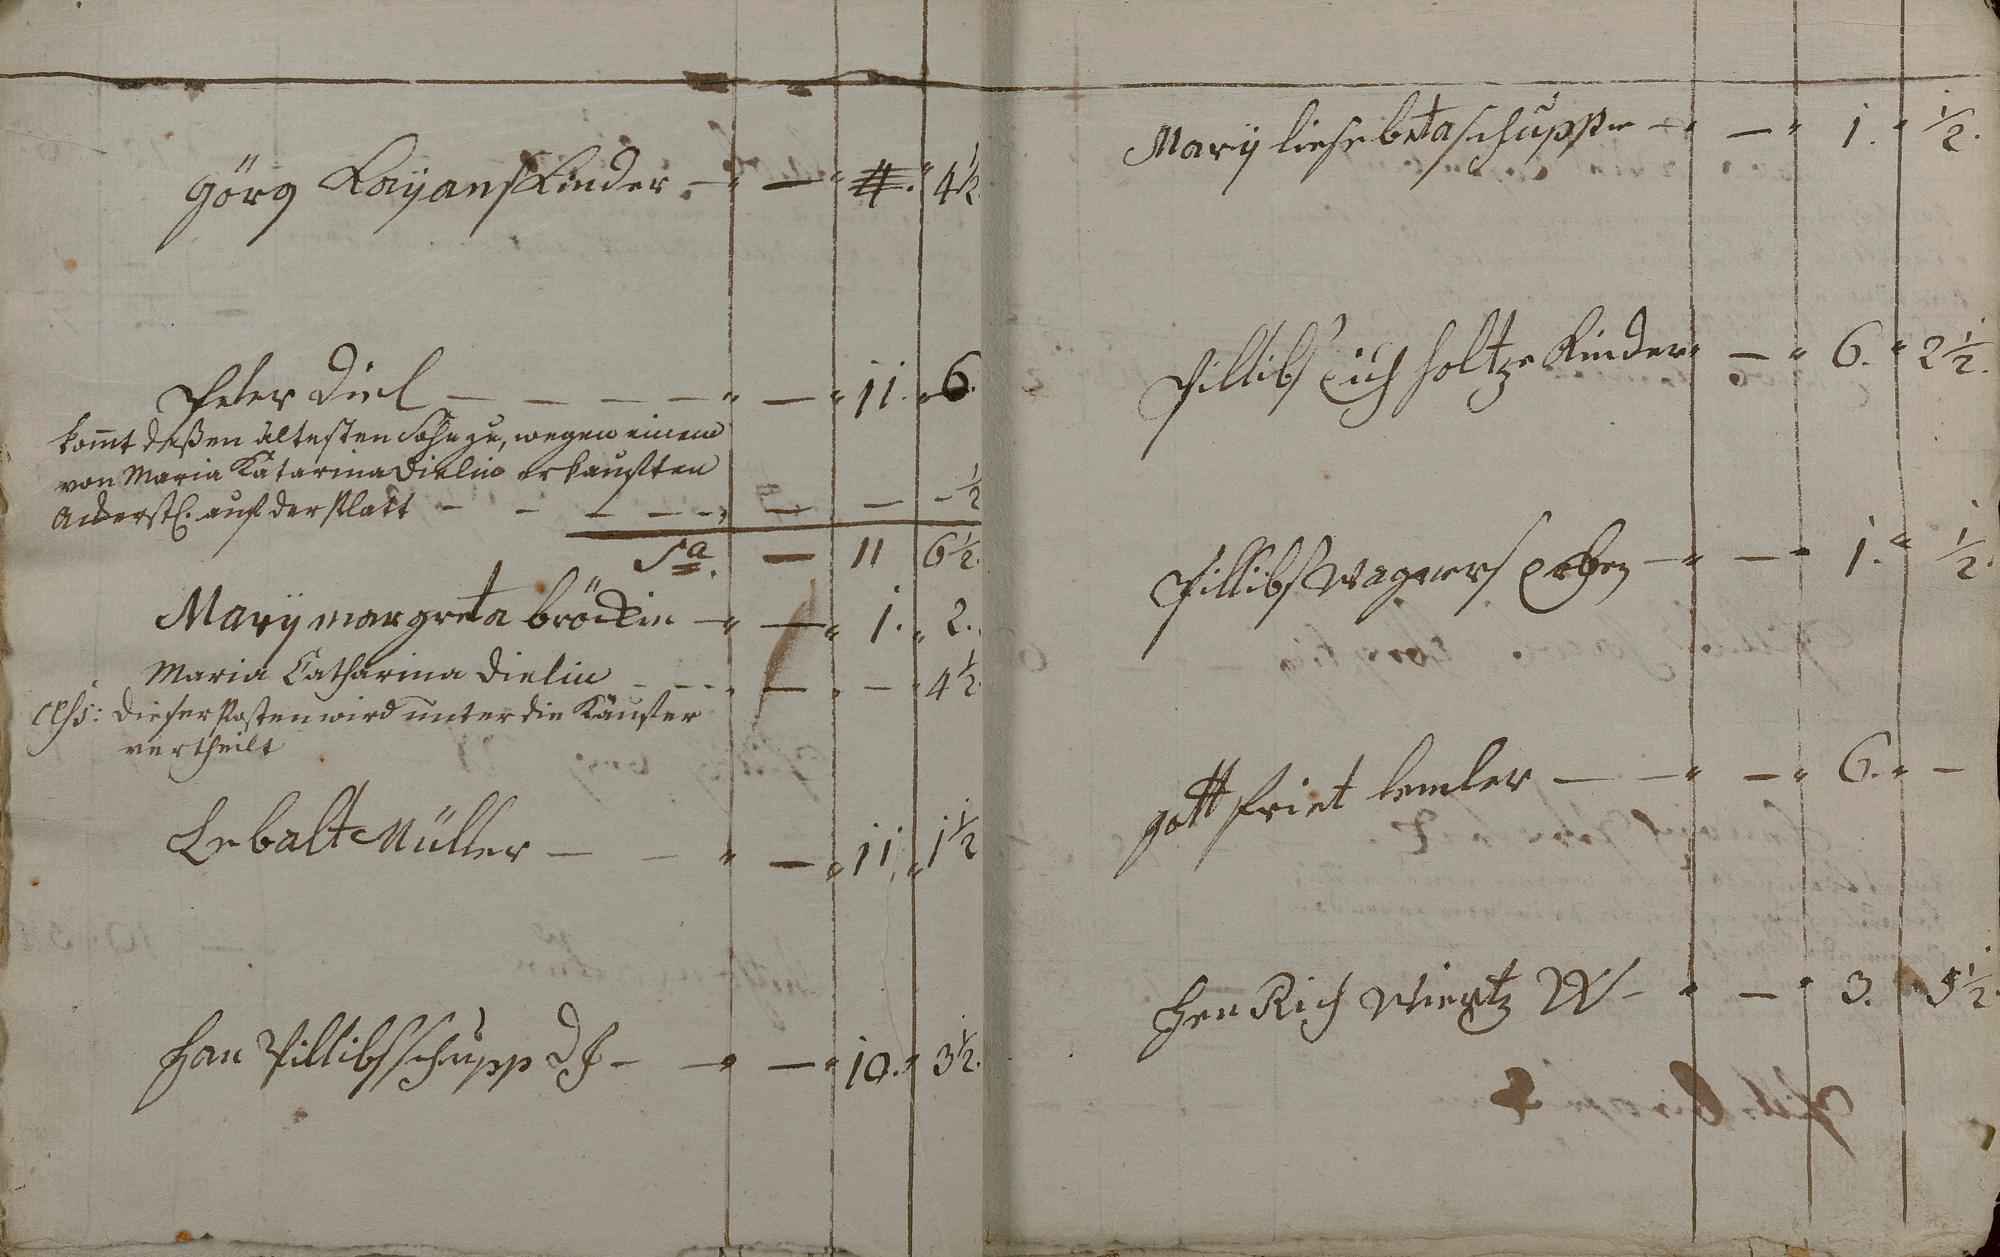 Görg Laÿans Kinder — " — " 4. " 4½.
Peter Diel — — — — — " — " 11. " 6.
kom̄t deßen ältesten Sohn zu, wegen einem
von Maria Katarina Dielin erkauften
Ackerst. auf der Platt — — — — — — — ½
Sa. — 11 6½.
Marÿ margreta bröckin — " — " 1. " 2.
Maria Catharina Dielin — — — . — . — " 4½.
dieser Posten wird unter die Käufer
vertheilt
Lebalt Müller — — " — " 11 " 1½
Han Pillibs schupp DJ — — " — " 10. " 3½.
Marÿ liesebeta schuppe — " — " 1. " ½.
Pillibs Eichholtze Kinder " — " 6. " 2½.
Pillibs Wagners Erben — " — " 1. " ½.
gottfriet lemler — — " — " 6. " —
HenRich Wiertz W — " — " 3. " 5½.